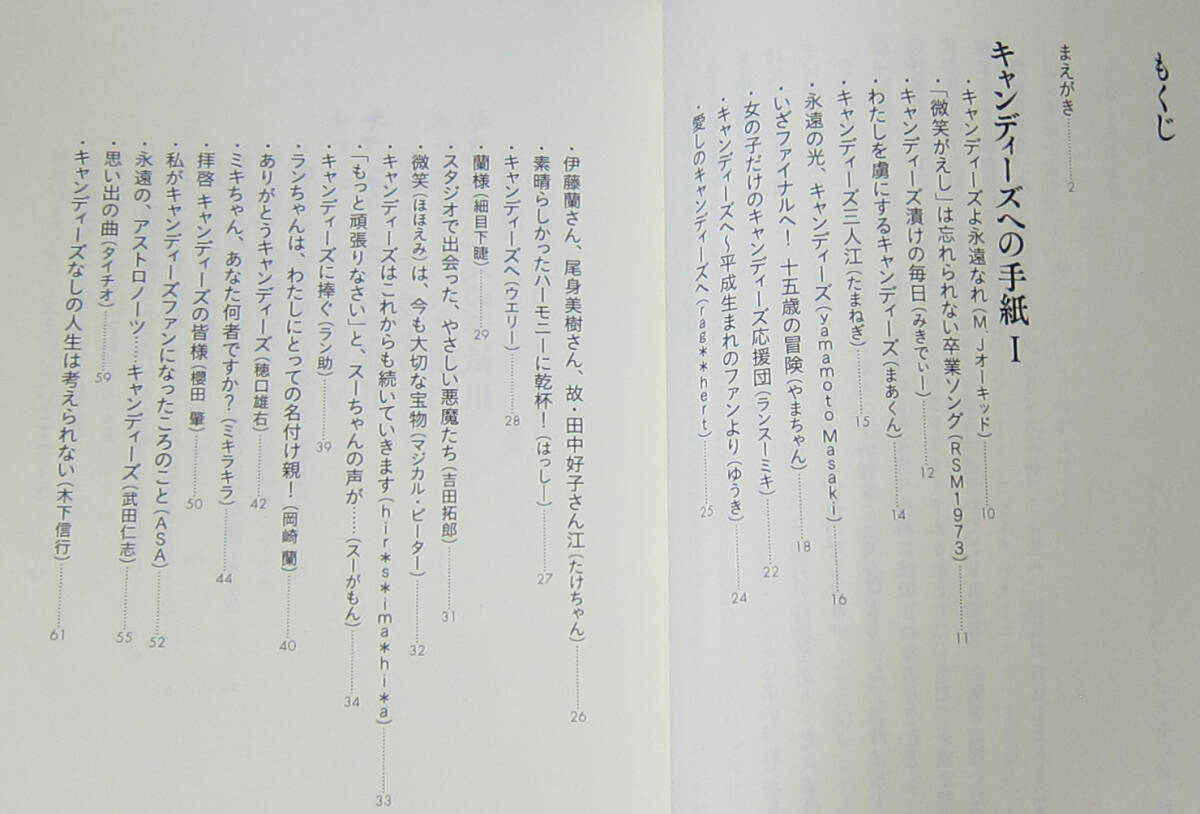 もくじ
まえがき…………2
キャンディーズへの手紙 Ⅰ
・キャンディーズよ永遠なれ(M.Jオーキッド)…………10
・「微笑がえし」は忘れられない卒業ソング(RSM1973)…………11
・キャンディーズ漬けの毎日(みきでぃー)…………12
・わたしを虜にするキャンディーズ(まあくん)…………14
・キャンディーズ三人江(たまねぎ)…………15
・永遠の光、キャンディーズ(yamamoto Masaki)…………16
・いざファイナルへ! 十五歳の冒険(やまちゃん)…………18
・女の子だけのキャンディーズ応援団(ランスーミキ)…………22
・キャンディーズへ～平成生まれのファンより(ゆうき)…………24
・愛しのキャンディーズへ(rag**hert)…………25
・伊藤蘭さん、尾身美樹さん、故・田中好子さん江(たけちゃん)…………26
・素晴らしかったハーモニーに乾杯!(はっしー)…………27
・キャンディーズへ(ウエリー)…………28
・蘭様(細目下睫)…………29
・スタジオで出会った、やさしい悪魔たち(吉田拓郎)…………31
・微笑(ほほえみ)は、今も大切な宝物(マジカル・ピーター)…………32
・キャンディーズはこれからも続いていきます(hir*s*ima*hi*a)…………33
・「もっと頑張りなさい」と、スーちゃんの声が……(スーがもん)…………34
・キャンディーズに捧ぐ(ラン助)…………39
・ランちゃんは、わたしにとっての名付け親!(岡崎 蘭)…………40
・ありがとうキャンディーズ(穂口雄右)…………42
・ミキちゃん、あなた何者ですか?(ミキラキラ)…………44
・拝啓 キャンディーズの皆様(櫻田 肇)…………50
・私がキャンディーズファンになったころのこと(ASA)…………52
・永遠の、アストロノーツ……キャンディーズ(武田仁志)…………55
・思い出の曲(タイチオ)…………59
・キャンディーズなしの人生は考えられない(木下信行)…………61